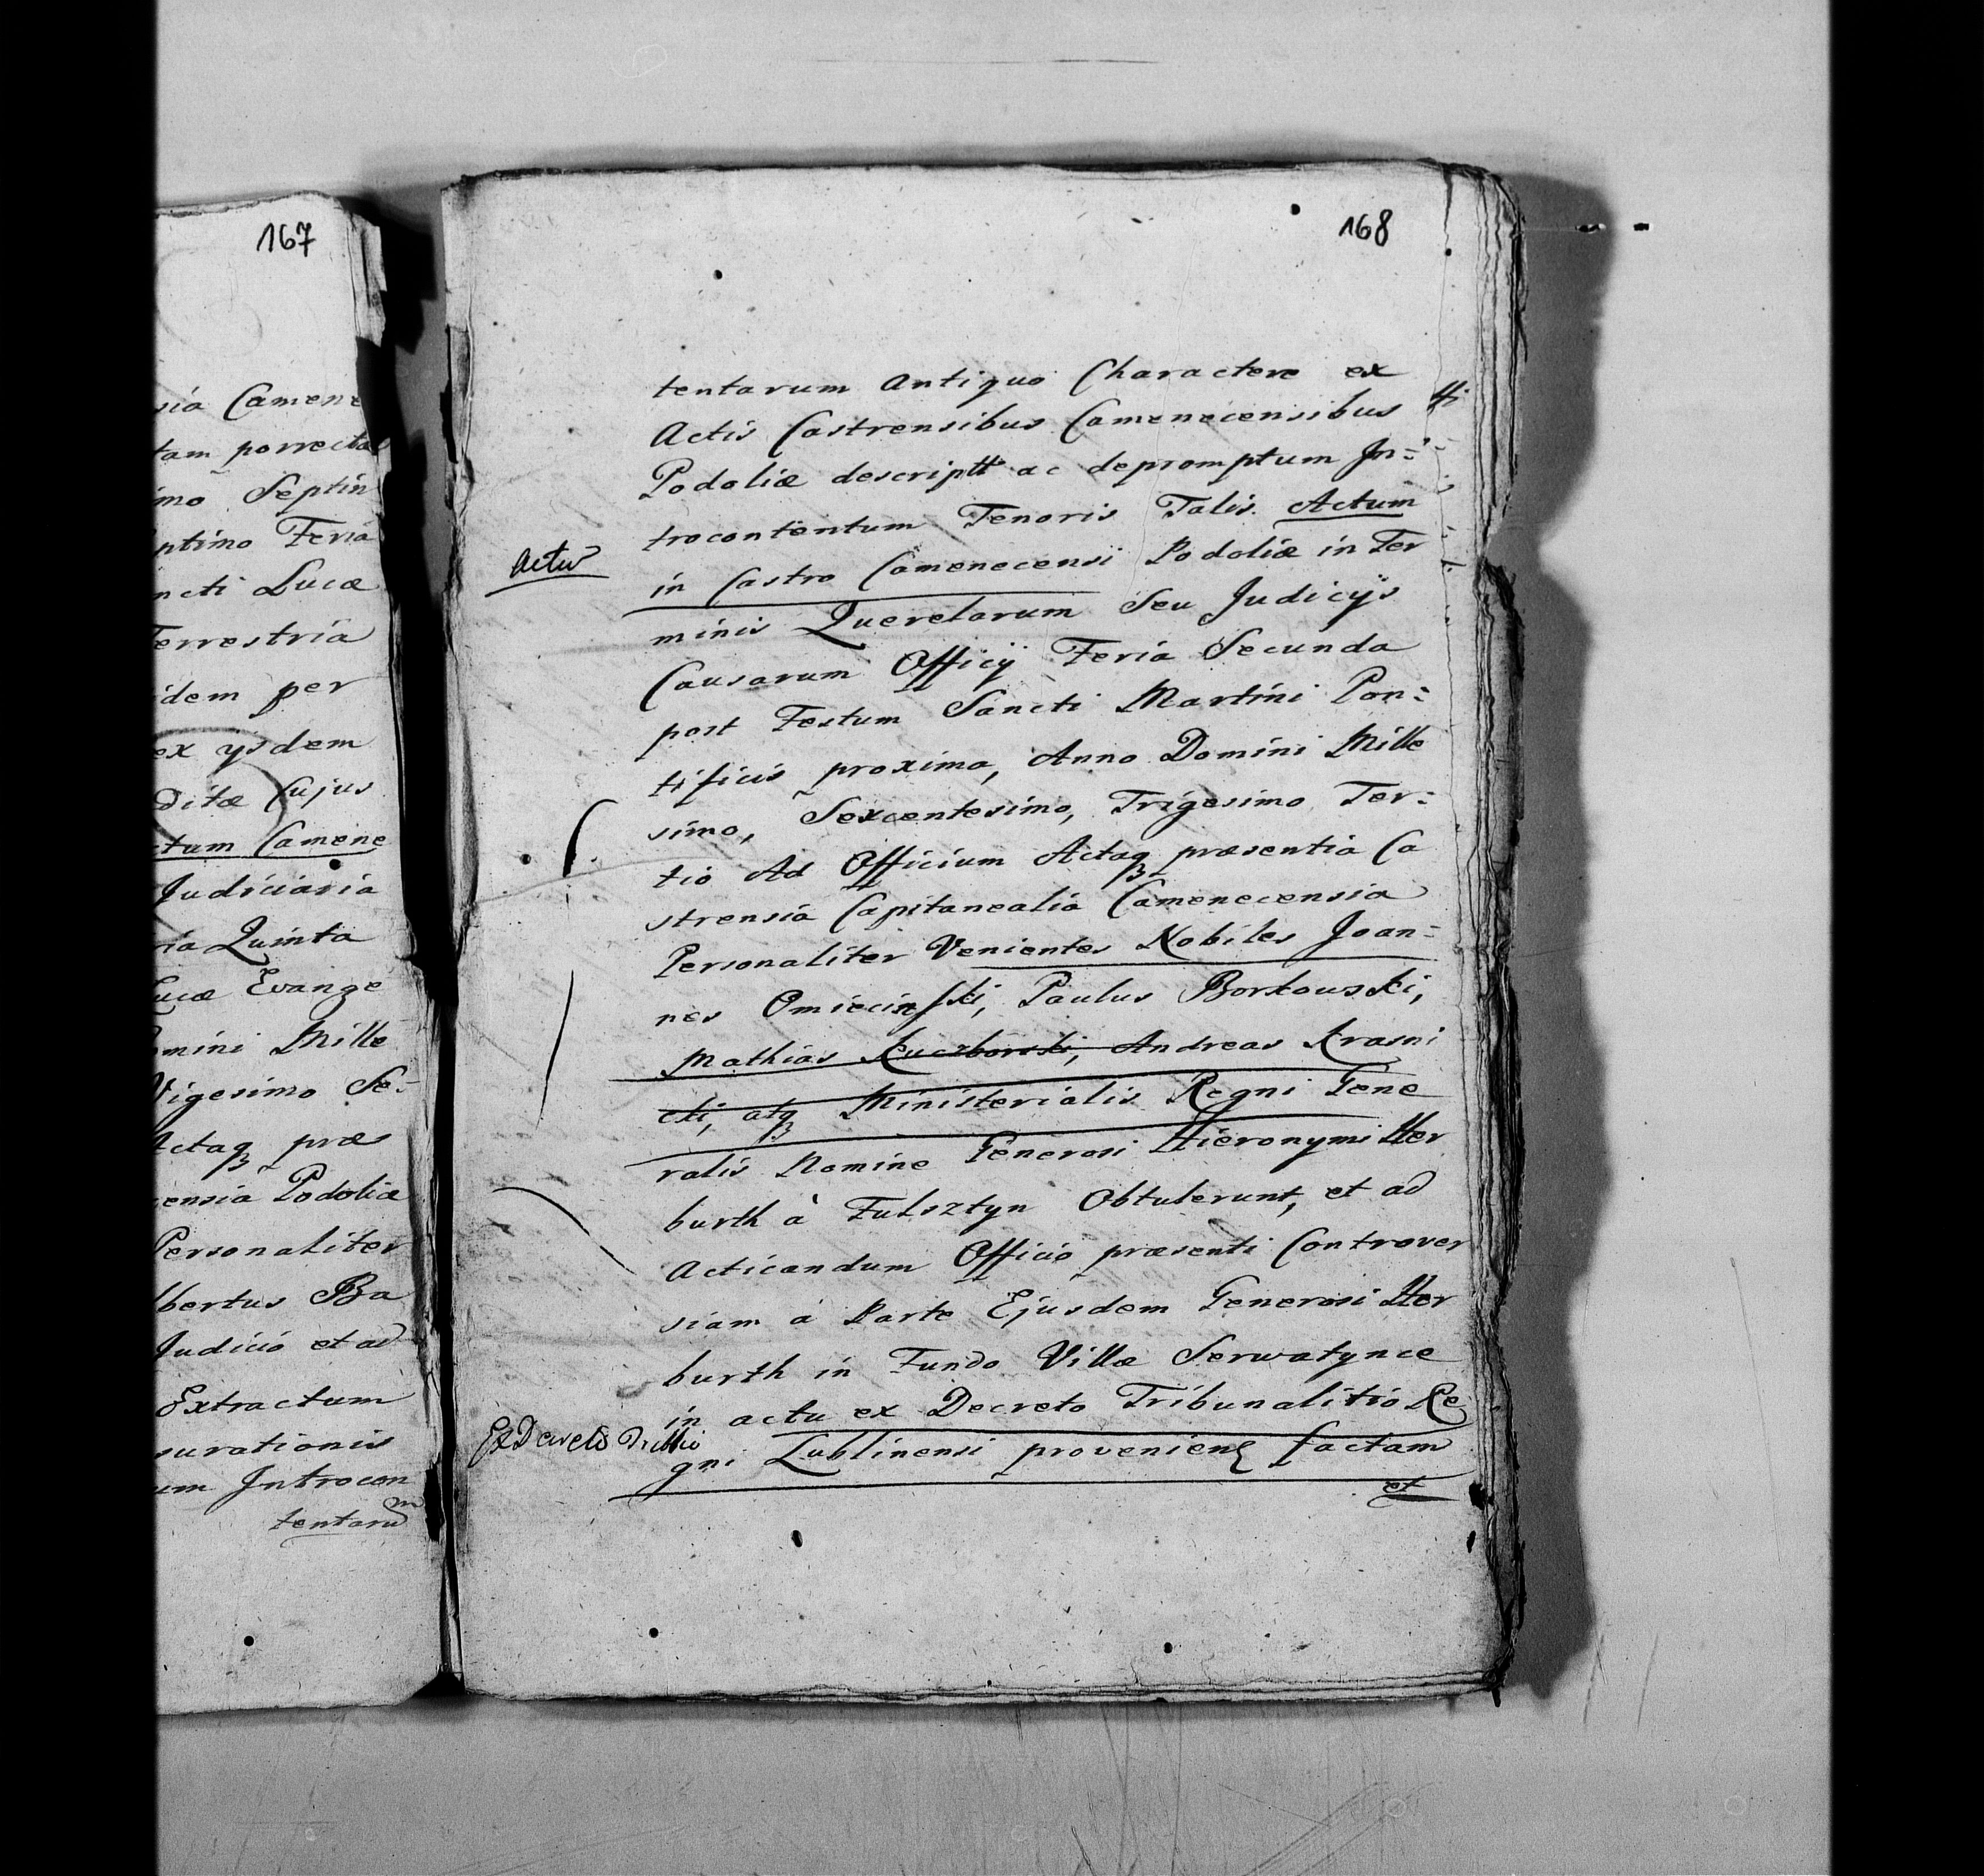 167
sia Camene
tam porrecta
imo Septin
ptimo Feria
ncti Luca
Terrestria
idem per
ex ysdem
ditæ Cujus
tum Camene
Judiciaria
ria Quinta
Lucæ Evange
omini Mille
Vigesimo Se-
Actaq præs
censia Podoliæ
Personaliter
lbertus Ba
Judicio et ad
Extractum
surationis
um Introcon
tentarum
168
tentarum Antiquo Charactere ex
Actis Castrensibus Camenecensibus
Podoliæ descriptt ac depromptum In=
trocontentum Tenoris Talis. Actum
Actu
in Castro Camenecensi Podoliæ in Ter
minis Querelarum Seu Judicijs
Causarum Officij Feria Secunda
post Festum Sancti Martini Pon=
tificis proxima, Anno Domini Mille
simo, Sexcentesimo, Trigesimo Ter=
tio Ad Officium Actaq præsentia Ca
strensia Capitanealia Camenecensia
Personaliter Venientes Nobiles Joan=
nes Omiecinski, Paulus Borkowski,
Mathias Kuczborski, Andreas Krasni
cki, atq Ministerialis Regni Gene
ralis Nomine Generosi Hieronymi Her
burth à Fulsztyn Obtulerunt, et ad
Acticandum Officio præsenti Controver
siam à Parte Ejusdem Generosi Her
burth in Fundo Villæ Serwatynce
in actu ex Decreto Tribunalitio Re
Ex Decreto
gni Lublinensi provenien factam
et